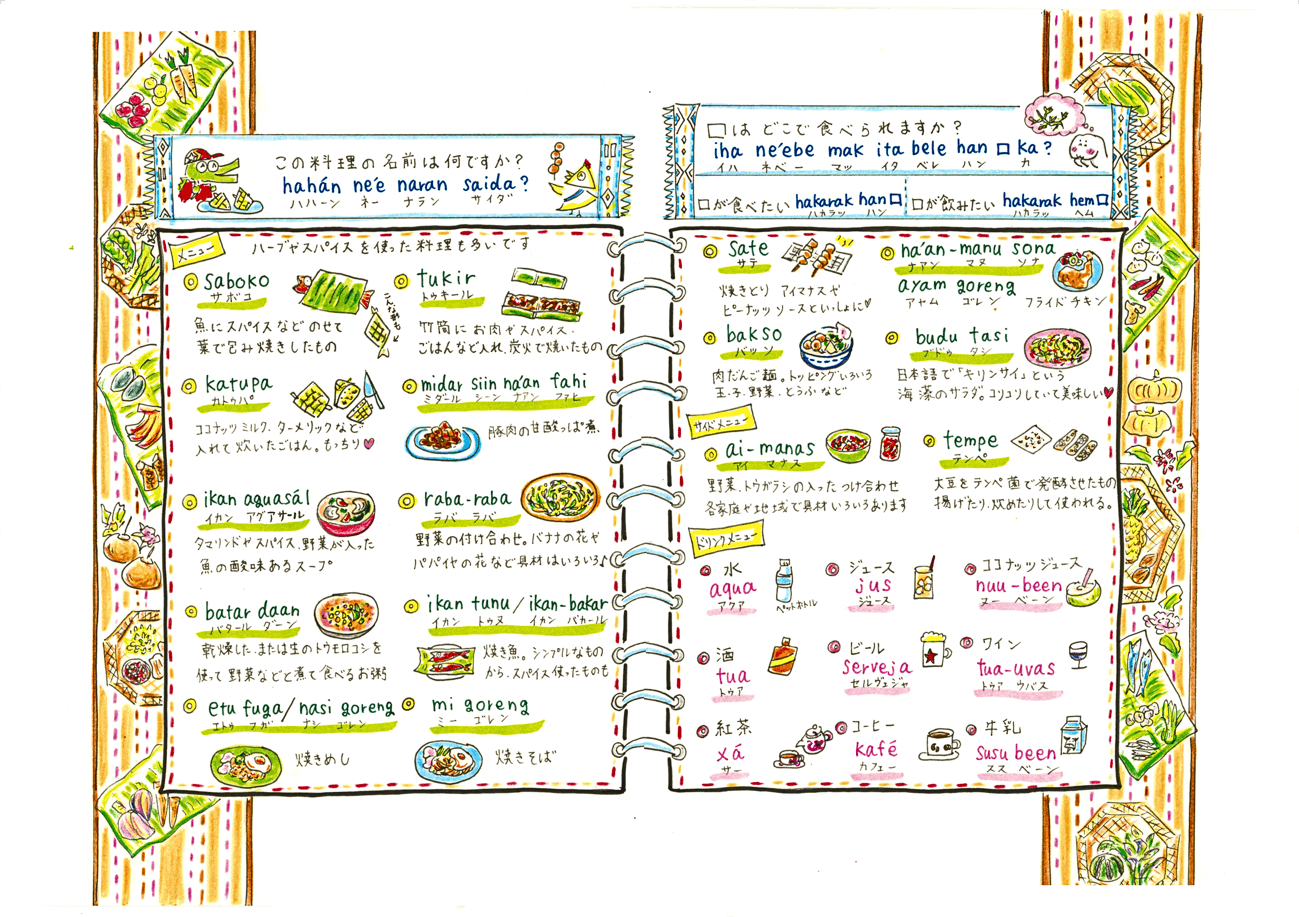 この料理の名前は何ですか?
hahán ne'e naran saida?
ハハーン ネー ナラン サイダ
メニュー
ハーブやスパイスを使った料理も多いです
saboko
サボコ
魚にスパイスなどのせて
葉で包み焼きしたもの
こんな形も
tukir
トゥキール
竹筒にお肉やスパイス・
ごはんなど入れ、炭火で焼いたもの
katupa
カトゥパ
ココナッツミルク、ターメリックなど
入れて炊いたごはん。もっちり♥
midar siin na'an fahi
ミダール シーン ナアン ファヒ
豚肉の甘酸っぱ煮、
ikan aguasál
イカン アグアサール
タマリンドやスパイス、野菜が入った
魚の酸味あるスープ
raba-raba
ラバ ラバ
野菜の付け合わせ。バナナの花や
パパイヤの花など具材はいろいろ♪
batar daan
バタール ダーン
乾燥した、または生のトウモロコシを
使って野菜などと煮て食べるお粥
ikan tunu/ikan-bakar
イカン トゥヌ イカン バカール
焼き魚。シンプルなもの
から、スパイス使ったものも
etu fuga/nasi goreng
エトゥ フガ ナシ ゴレン
焼きめし
mi goreng
ミー ゴレン
焼きそば
□は どこで食べられますか?
iha ne'ebe mak ita bele han □ ka?
イハ ネベー マッ イタ ベレ ハン カ
□が食べたい hakarak han □
ハカラッ ハン
□が飲みたい hakarak hem □
ハカラッ ヘム
sate
サテ
焼きとり アイマナスや
ピーナッツソースといっしょに♥
na'an-manu sona
ナアン マヌ ソナ
ayam goreng
アヤム ゴレン フライドチキン
bakso
バッソ
肉だんご麺。トッピングいろいろ
玉子、野菜、とうふなど
budu tasi
ブドゥ タシ
日本語で「キリンサイ」という
海藻のサラダ。コリコリしていて美味しい♥
サイドメニュー
ai-manas
アイ マナス
野菜、トウガラシの入ったつけ合わせ
各家庭や地域で具材いろいろあります
tempe
テンペ
大豆をテンペ菌で発酵させたもの
揚げたり、炒めたりして使われる。
ドリンクメニュー
水
aqua
アクア
ペットボトル
ジュース
jus
ジュース
ココナッツジュース
nuu-been
ヌー ベーン
酒
tua
トゥア
ビール
serveja
セルヴェジャ
ワイン
tua-uvas
トゥア ウバス
紅茶
xá
サー
コーヒー
kafé
カフェー
牛乳
susu been
スス ベーン